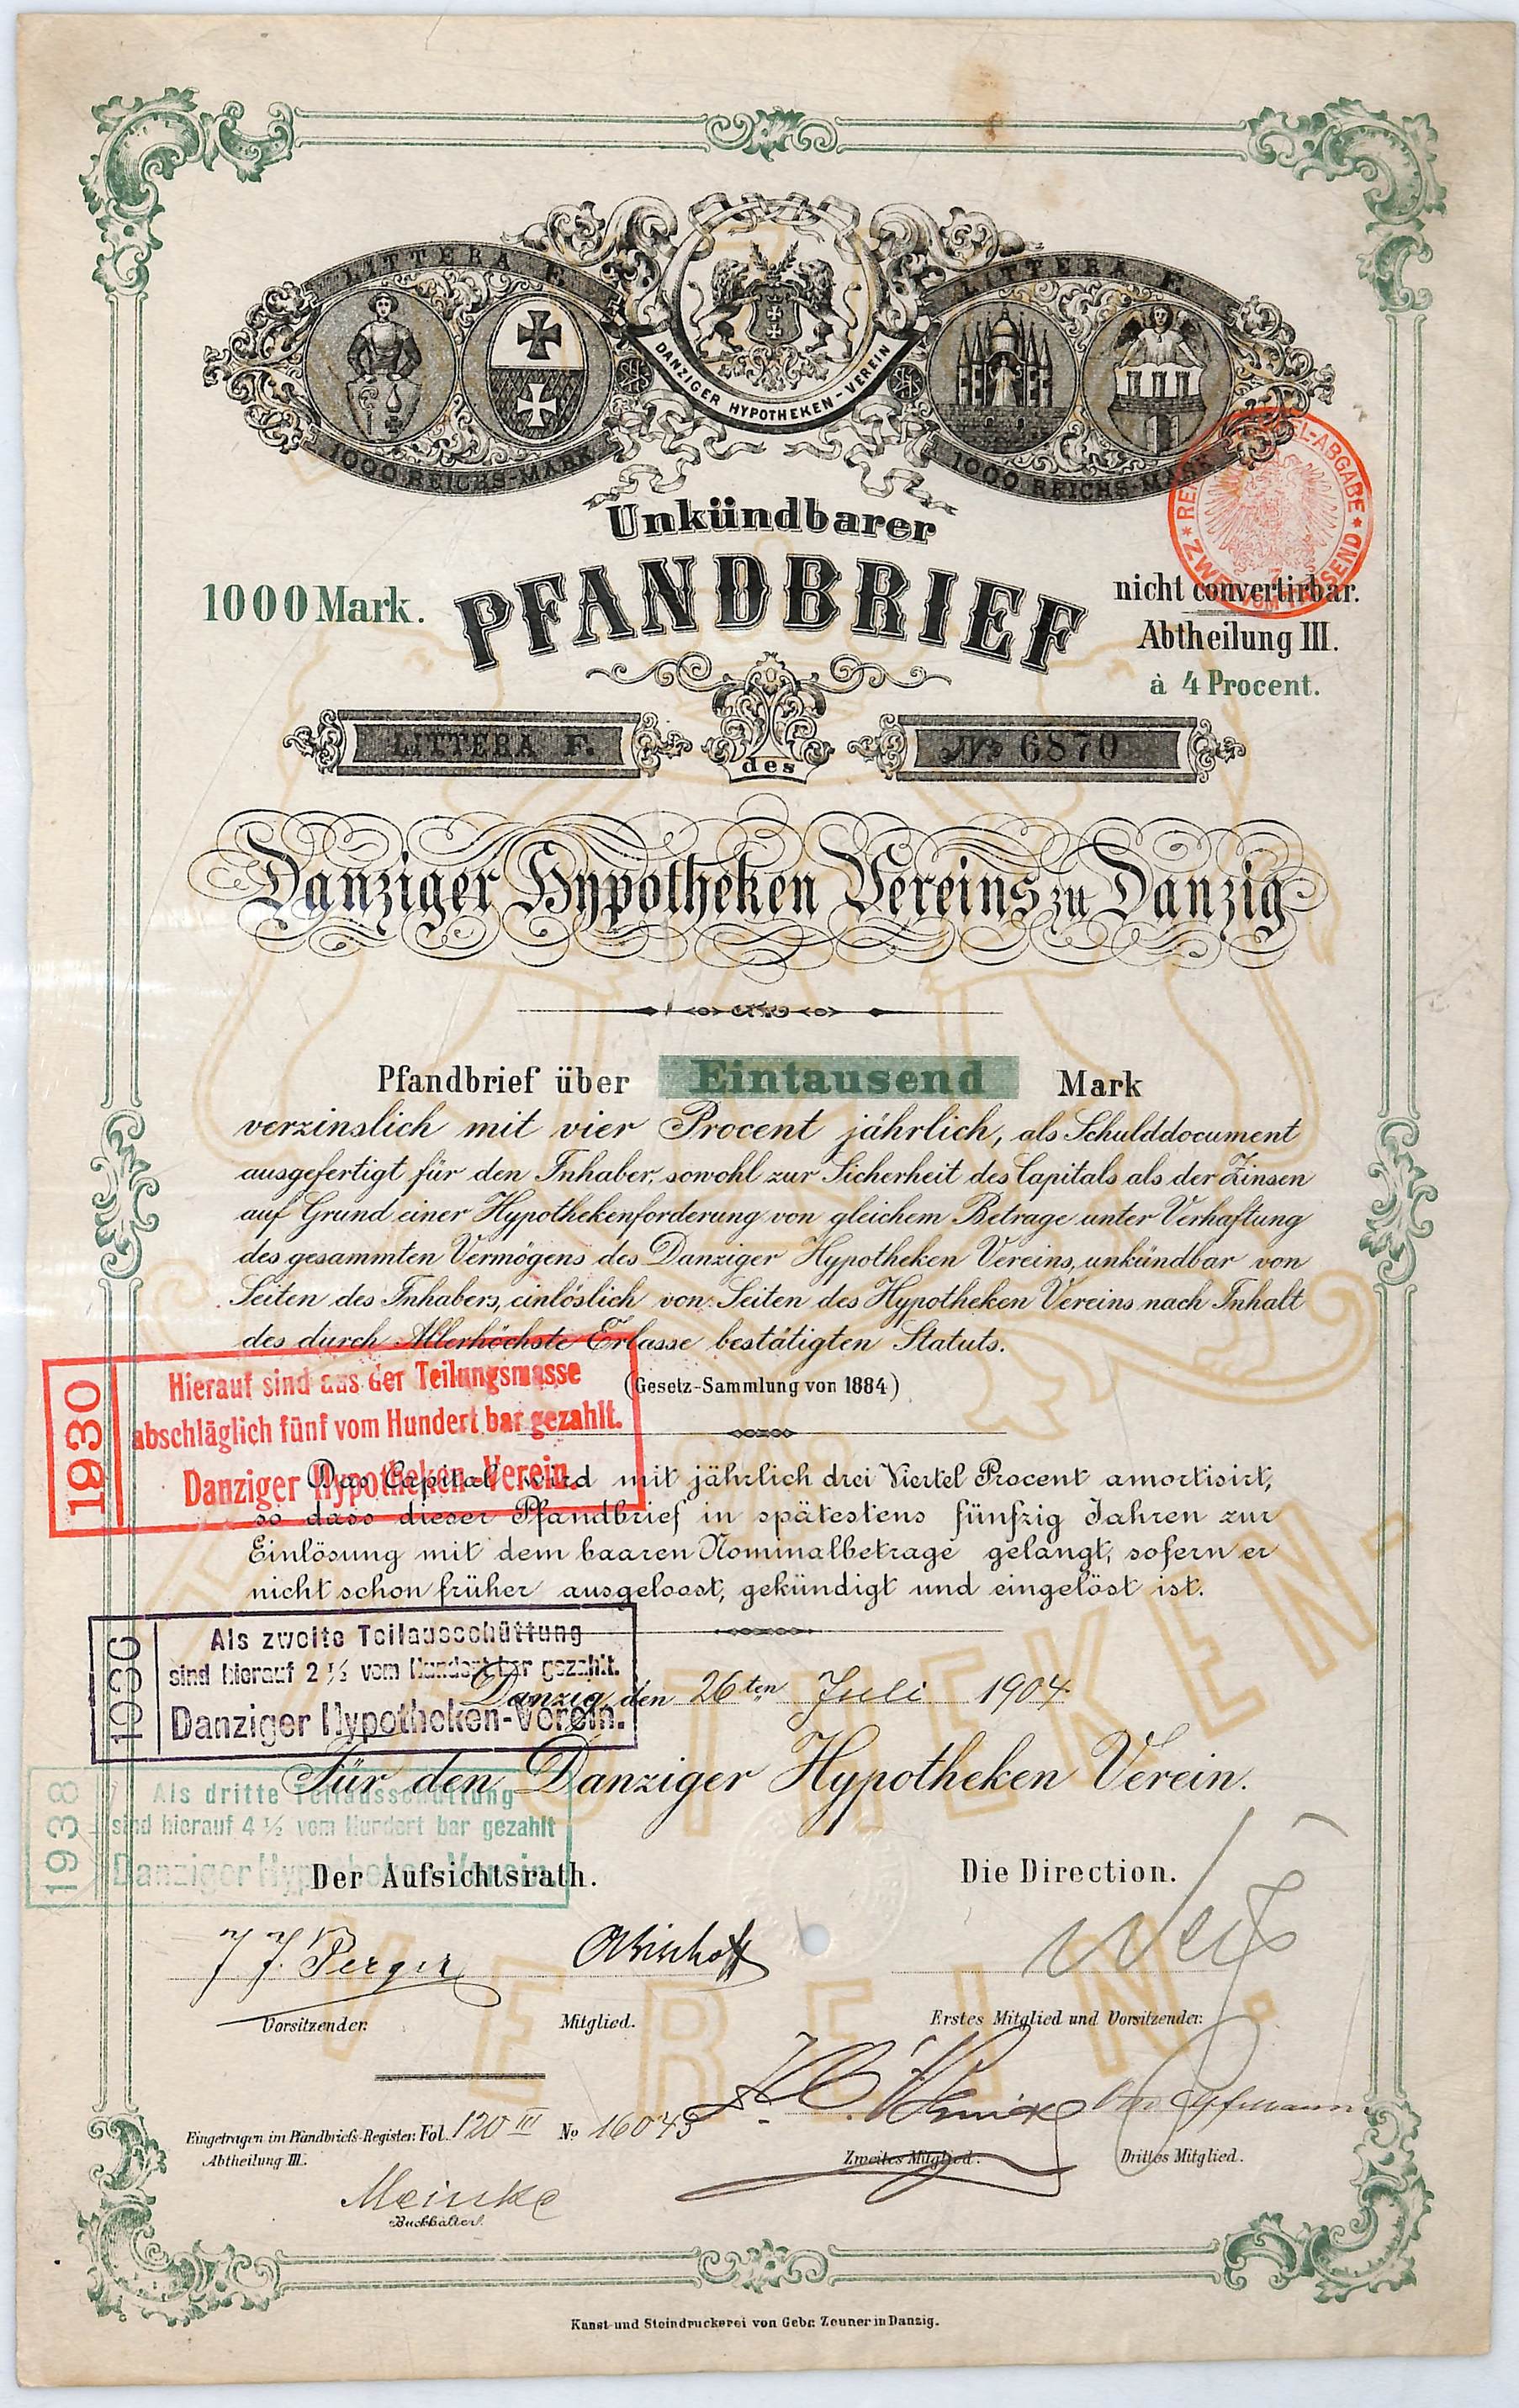 LITTERA F.
LITTERA F.
DANZIGER HYPOTHEKEN-VEREIN
1000 REICHS-MARK
1000 REICHS-MARK
Unkündbarer
1000 Mark.
PFANDBRIEF
nicht convertirbar.
Abtheilung III.
à 4 Procent.
LITTERA F.
des
No 6870
Danziger Hypotheken Vereins zu Danzig
Pfandbrief über Eintausend Mark
verzinslich mit vier Procent jährlich, als Schulddocument
ausgefertigt für den Inhaber, sowohl zur Sicherheit des Capitals als der Zinsen
auf Grund einer Hypothekenforderung von gleichem Betrage unter Verhaftung
des gesammten Vermögens des Danziger Hypotheken Vereins, unkündbar von
Seiten des Inhabers, einlöslich von Seiten des Hypotheken Vereins nach Inhalt
des durch Allerhöchste Erlasse bestätigten Statuts.
(Gesetz-Sammlung von 1884)
1930
Hierauf sind aus der Teilungsmasse
abschläglich fünf vom Hundert bar gezahlt.
Danziger Hypotheken-Verein.
Das Capital wird mit jährlich drei Viertel Procent amortisirt,
so dass dieser Pfandbrief in spätestens fünfzig Jahren zur
Einlösung mit dem baaren Nominalbetrage gelangt, sofern er
nicht schon früher ausgeloost, gekündigt und eingelöst ist.
1936
Als zweite Teilausschüttung
sind hierauf 2 ½ vom Hundert bar gezahlt.
Danziger Hypotheken-Verein.
Danzig, den 26ten Juli 1904
Für den Danziger Hypotheken Verein.
1938
Als dritte Teilausschüttung
sind hierauf 4 ½ vom Hundert bar gezahlt
Danziger Hypotheken-Verein
Der Aufsichtsrath.
Die Direction.
Vorsitzender.
Mitglied.
Erstes Mitglied und Vorsitzender.
Eingetragen im Pfandbriefs-Register: Fol. 120 III No 16043
Abtheilung III.
Zweites Mitglied.
Drittes Mitglied.
Meinke
Buchhalter.
Kunst- und Steindruckerei von Gebr. Zeuner in Danzig.
HYPOTHEKEN-
VEREIN.